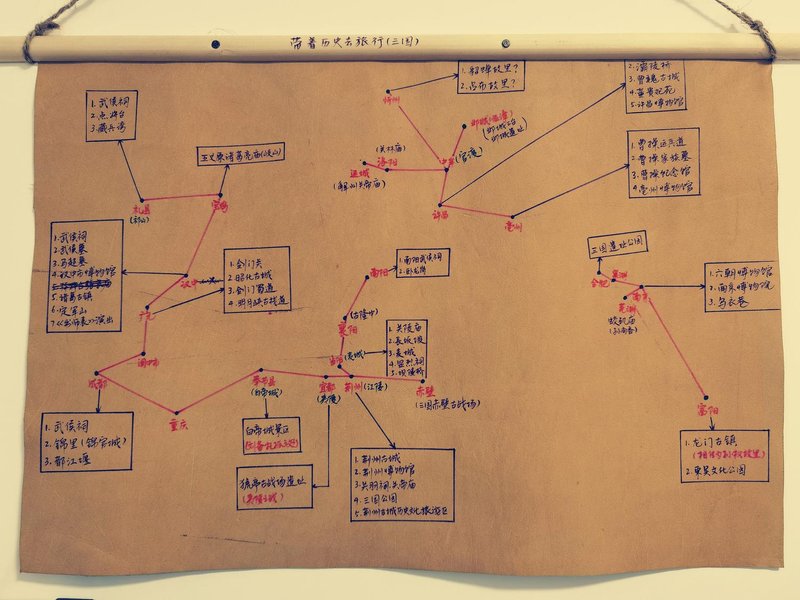 带着历史去旅行(三国)
1.武侯祠
2.点将台
3.藏兵湾
五丈原诸葛亮庙(岐山)
礼县
(祁山)
宝鸡
1.武侯祠
2.武侯墓
3.马超墓
4.汉中市博物馆
5.诸葛古镇
6.定军山
7.《出师表》演出
汉中
1.剑门关
2.昭化古城
3.剑门蜀道
4.明月峡古栈道
广元
阆中市
成都
1.武侯祠
2.锦里(锦官城)
3.都江堰
重庆
奉节县
(白帝城)
白帝城景区
(刘备托孤之地)
猇亭古战场遗址
(夷陵之战)
宜都
(夷陵)
荆州(江陵)
1.荆州古城
2.荆州博物馆
3.关羽祠,关帝庙
4.三国公园
5.荆州古城历史文化旅游区
赤壁
(三国赤壁古战场)
当阳
(麦城)
1.关陵庙
2.长坂坡
3.麦城
4.显烈祠
5.坝陵桥
襄阳
(古隆中)
南阳
1.南阳武侯祠
2.卧龙岗
忻州
1.貂蝉故里?
2.吕布故里?
邯郸(临漳)
(邺城三台
邺城遗址)
运城
(解州关帝庙)
(关林庙)
洛阳
中牟
(官渡)
许昌
1.灞陵桥
3.曹魏古城
5.许昌博物馆
亳州
1.曹操运兵道
2.曹操家族墓
3.曹操纪念馆
4.亳州博物馆
三国遗址公园
合肥
巢湖
南京
芜湖
1.六朝博物馆
2.南京博物院
3.乌衣巷
富阳
1.龙门古镇
2.东吴文化公园